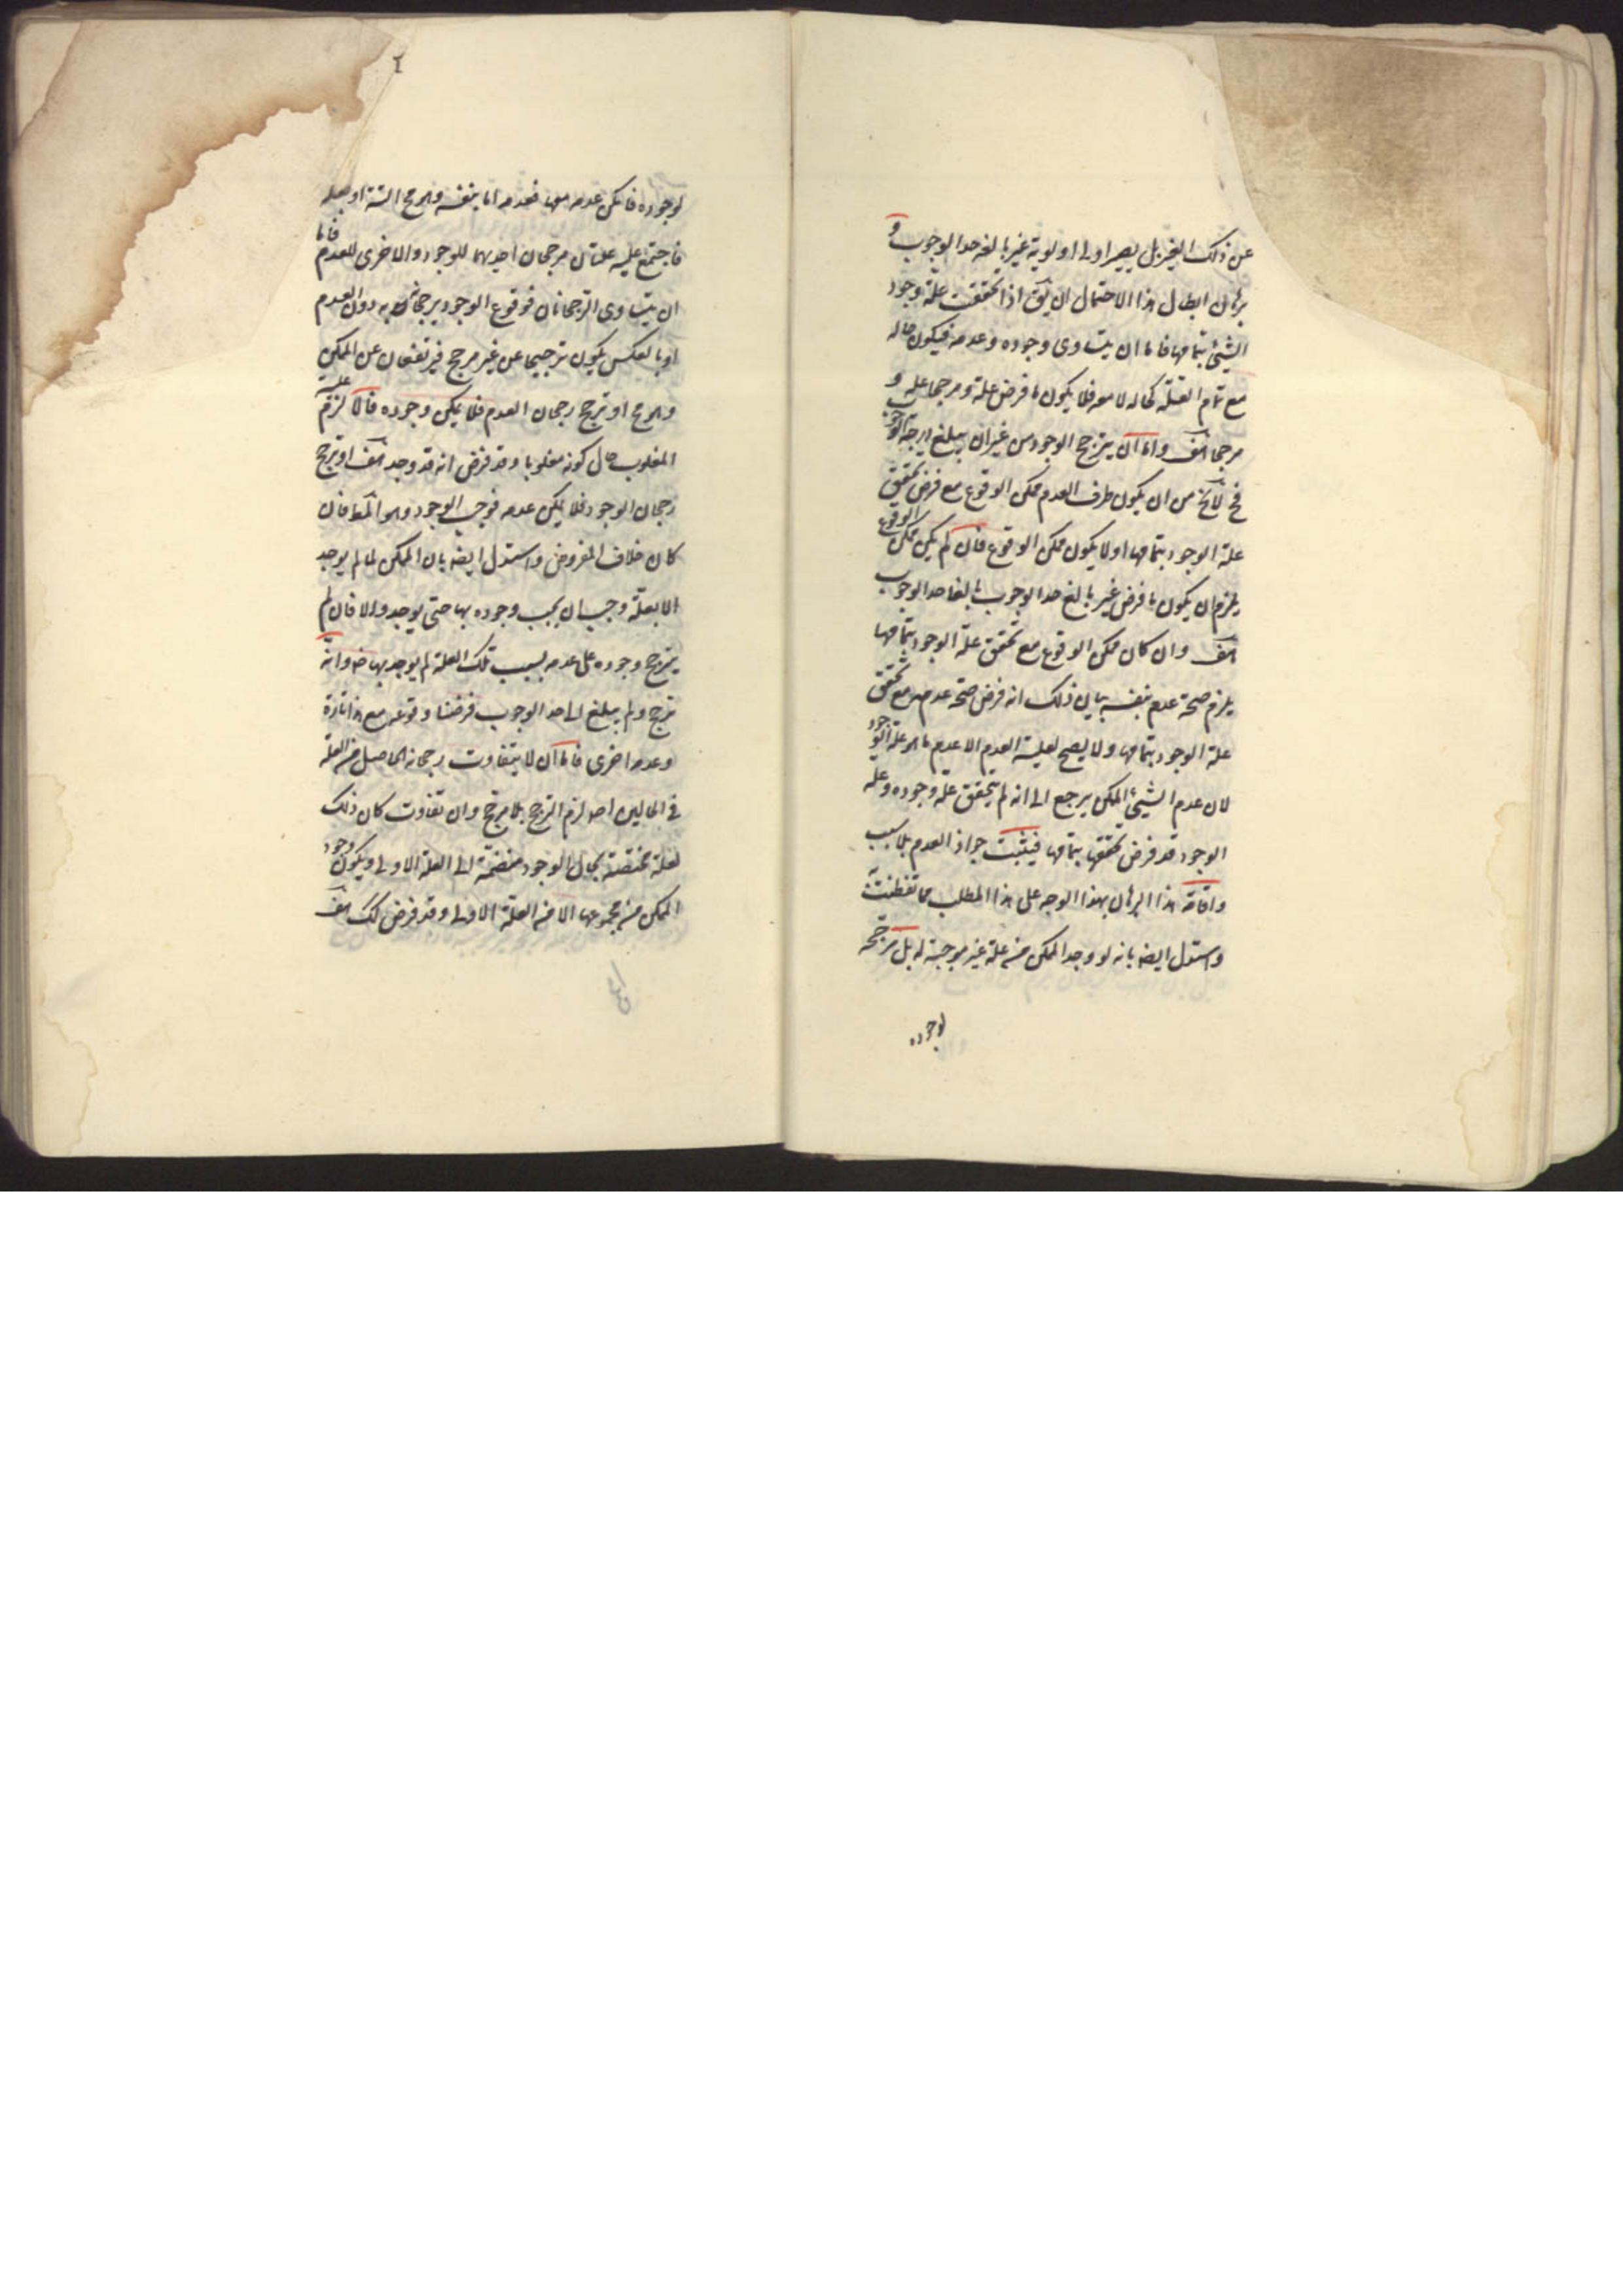 عن ذلك الغير بل يصير اولى اولوية غير بالغه حد الوجوب و
برهان ابطال هذا الاحتمال ان يق اذا تحققت علة وجود
الشيئ بتمامها فاما ان يتساوى وجوده وعدمه فيكون حاله
مع تمام العلة كحاله لا معه فلا يكون ما فرض علة ومرجحا علة و
مرجحا هف واما ان يترجح الوجود من غير ان يبلغ درجة الوجوب
فح لا يخ من ان يكون طرف العدم ممكن الوقوع مع فرض تحقق
علة الوجود بتمامها او لا يكون ممكن الوقوع فان لم يكن ممكن الوقوع
يلزم ان يكون ما فرض غير بالغ حد الوجوب بالغا حد الوجوب
هف وان كان ممكن الوقوع مع تحقق علة الوجود بتمامها
يلزم صحة عدم بنفسه بيان ذلك انه فرض صحة عدمه مع تحقق
علة الوجود بتمامها ولا يصح لعلية العدم الا عدم ما هو علة الوجود
لان عدم الشيئ الممكن يرجع الى انه لم يتحقق علة وجوده وعلة
الوجود قد فرض تحققها بتمامها فيثبت جواز العدم بلا سبب
واقامة هذا البرهان بهذا الوجه على هذا المطلب مما تفطنت
واستدل ايضه بانه لو وجد الممكن من علة غير موجبة له بل مرجحة
لوجوده
لوجوده فامكن عدمه معها فعدمه اما بنفسه وهو مح البتة او بعلة
فاجتمع عليه علتان مرجحتان احديهما للوجود والاخرى للعدم فاما
ان يتساوى الرجحانان فوقوع الوجود برجحانه دون العدم
او بالعكس يكون ترجيحا عن غير مرجح فيرتفعان عن الممكن
وهو مح او ترجح رجحان العدم فلا يمكن وجوده والا لزم غلبة
المغلوب حال كونه مغلوبا وقد فرض انه قد وجد هف او ترجح
رجحان الوجود فلا يمكن عدمه فوجب الوجود وهو المط فان
كان خلاف المفروض واستدل ايضه بان الممكن لما لم يوجد
الا بعلة وجب ان يجب وجوده بها حتى يوجد والا فان لم
يترجح وجوده على عدمه بسبب تلك العلة لم يوجد بها وان
ترجح ولم يبلغ الى حد الوجوب فرضنا وقوعه مع هذا تارة
وعدمه اخرى فاما ان لا يتفاوت رجحانه الحاصل من العلة
في الحالين اصلا لزم الترجح بلا مرجح وان تفاوت كان ذلك
لعلة مختصة بحال الوجود منضمة الى العلة الاولى ويكون وجود
الممكن من مجموعها الا من العلة الاولى وقد فرض كك هف